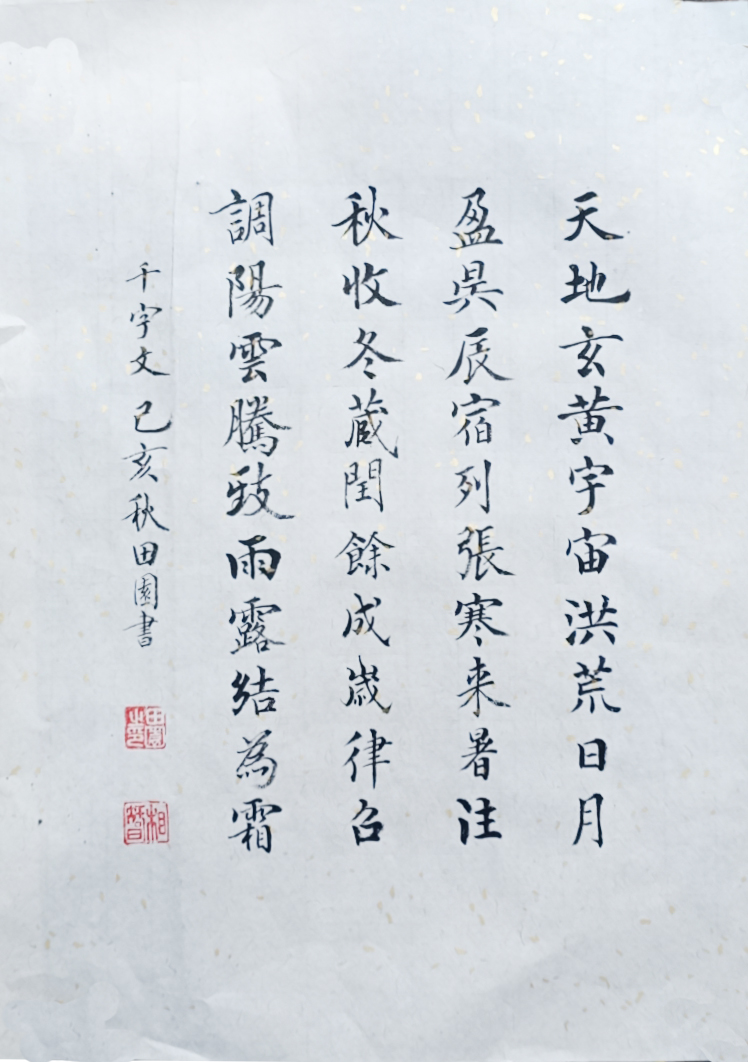 天地玄黄宇宙洪荒日月
盈昃辰宿列張寒来暑注
秋收冬蔵閏餘成歲律召
調陽雲騰致雨露結為霜
千字文 己亥秋田園書
田園之印